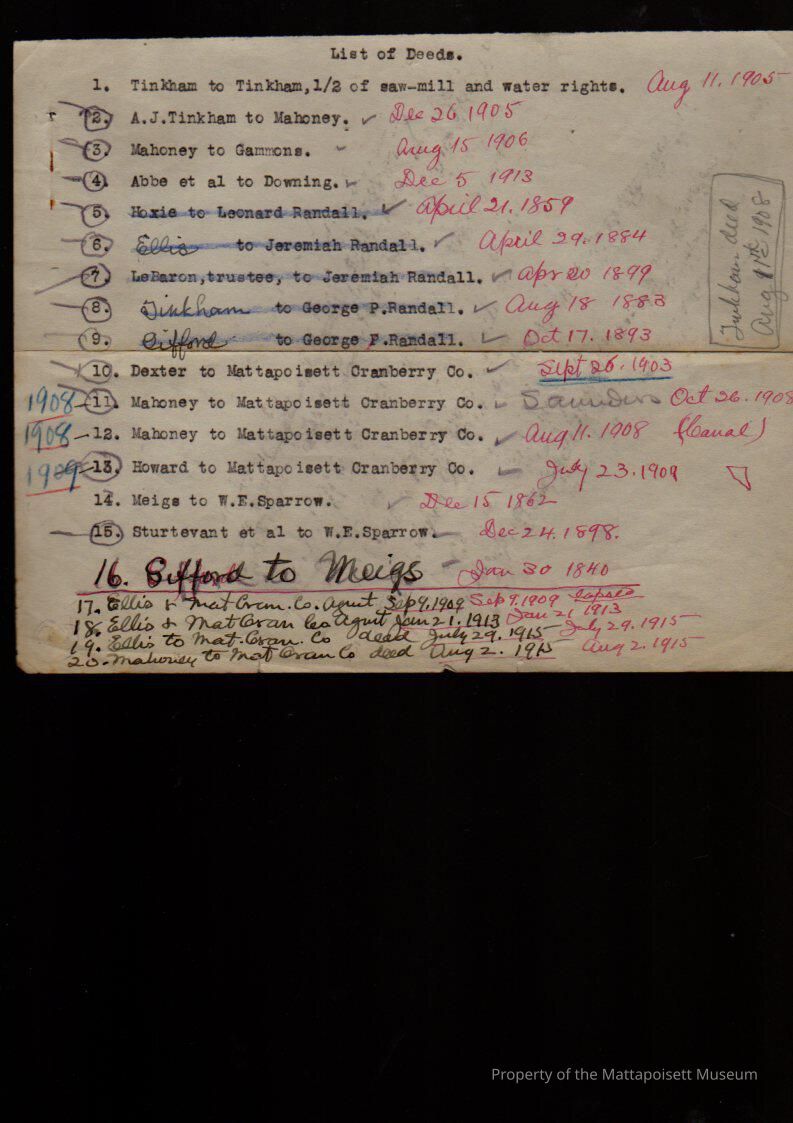 List of Deeds.
1. Tinkham to Tinkham,1/2 of saw-mill and water rights. Aug 11. 1905
2. A.J.Tinkham to Mahoney. ✓ Dec 26 1905
3. Mahoney to Gammons. ✓ Aug 15 1906
4. Abbe et al to Downing. ✓ Dec 5 1913
5. Hoxie to Leonard Randall. ✓ April 21. 1859
6. Ellis to Jeremiah Randall. ✓ April 29. 1884
7. LeBaron,trustee, to Jeremiah Randall. ✓ Apr 20 1899
8. Tinkham to George P.Randall. ✓ Aug 18 1883
9. Gifford to George P.Randall. ✓ Oct 17. 1893
Tinkham deed
Aug 11th 1908
10. Dexter to Mattapoisett Cranberry Co. ✓ Sept 26. 1903
1908 11. Mahoney to Mattapoisett Cranberry Co. ✓ Saunders Oct 26. 1908
1908 12. Mahoney to Mattapoisett Cranberry Co. ✓ Aug 11. 1908 (Canal)
1909 13. Howard to Mattapoisett Cranberry Co. ✓ July 23. 1909
14. Meigs to W.E.Sparrow. ✓ Dec 15 1862
15. Sturtevant et al to W.E.Sparrow. ✓ Dec 24. 1898.
16. Gifford to Meigs Jan 30 1840
17. Ellis & Mat Cran. Co. Agmt Sep 9, 1909 Sep 9. 1909 lapsed
18. Ellis & Mat Cran Co Agmt Jan 21. 1913 Jan 21 1913
19. Ellis to Mat. Cran. Co deed July 29. 1915 July 29. 1915
20. Mahoney to Mat Cran Co deed Aug 2. 1915 Aug 2. 1915
Property of the Mattapoisett Museum